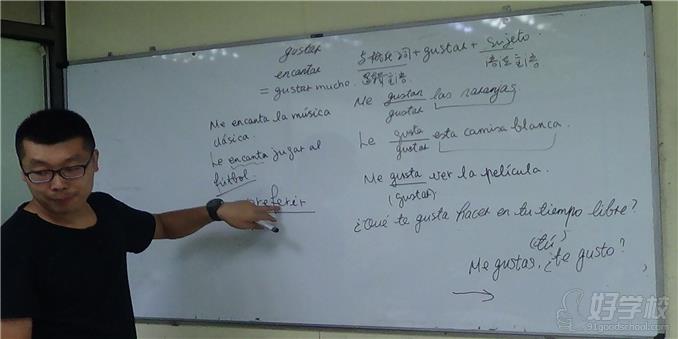 gustar
encantar
= gustar mucho.
Me encanta la música
clásica.
Le encanta jugar al
fútbol.
preferir
+ gustar + Sujeto
逻辑主语
语法主语
Me gustan las naranjas.
gustar
Le gusta esta camisa blanca.
gustar
Me gusta ver la película.
(gustar)
¿Qué te gusta hacer en tu tiempo libre?
(tú)
Me gustas, ¿te gusto?
好学校
91goodschool.com